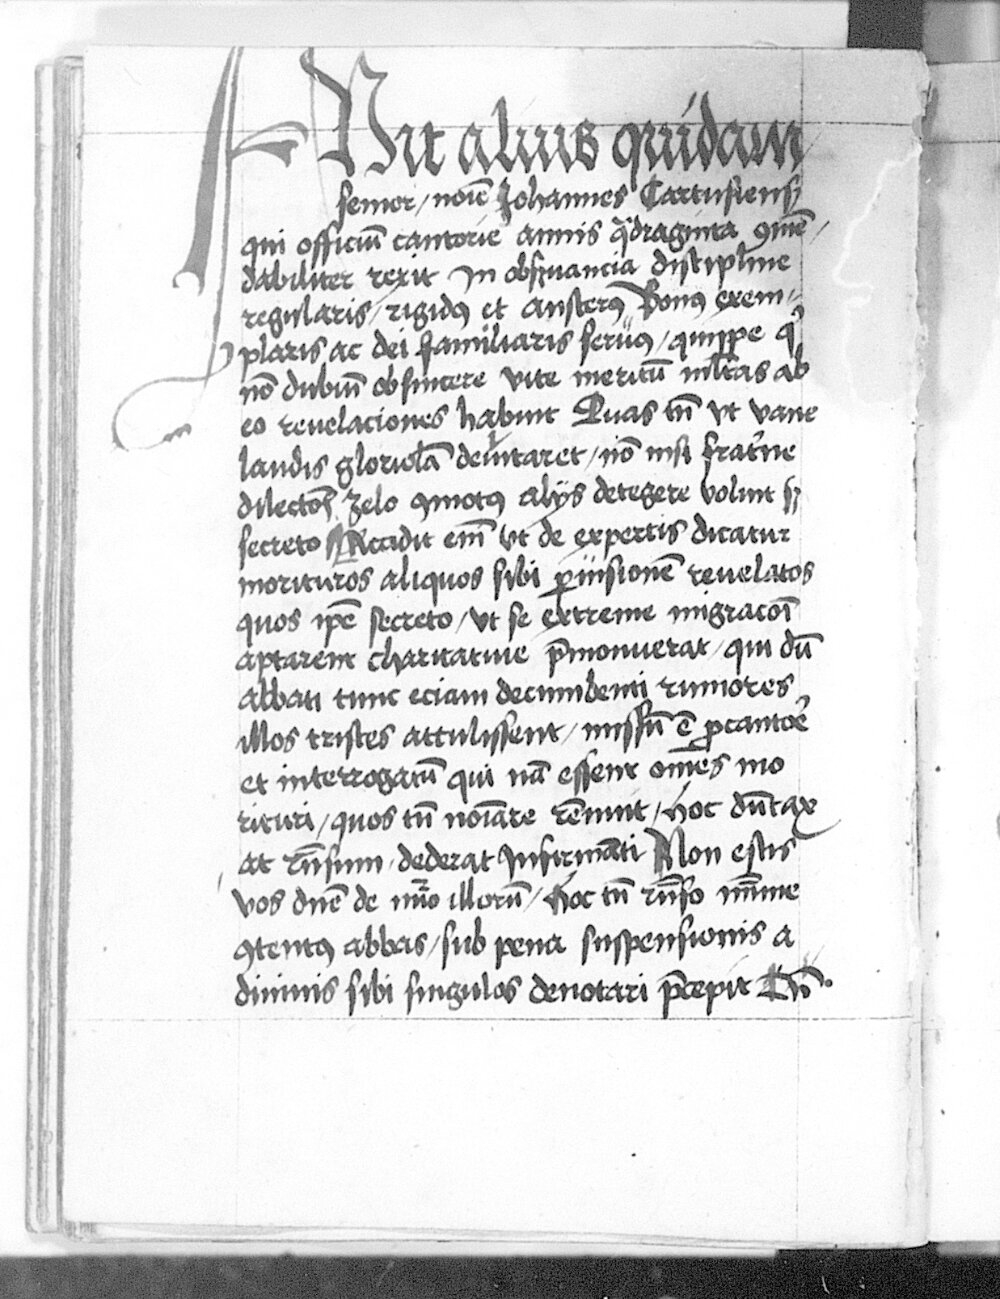 Fuit alius quidam
senior / noīe Johannes Cartusiensꝭ
qui officiū cantorie annis q̄draginta ꝯmē /
dabiliter rexit In obẜuancia discipline
regularis / rigidꝰ et austerꝰ Bonꝰ exem /
plaris ac dei familiaris seruꝰ / quippe q̇
nō dubiū ob sincere vite meritū ml̄tas ab
eo reuelaciones habuit Quas tn̄ vt vane
laudis gloriolā deuitaret / nō nisi frat͛ne
dilectōis zelo ꝯmotꝰ alijs detegere voluit ẜ
secreto Accidit em̄ vt de expertis dicatur
morituros aliquos sibi ꝑ visionē reuelatos
quos ip̄e secreto / vt se extreme migracōi
aptarent charitatiue p̄monuerat / qui dū
abbati tunc eciam decumbenti rumores
illos tristes attulissent / missū ē ꝓ cantoē
et interrogatū qui nā essent om̄es mo
rituri / quos tn̄ noīare rēnuit / hoc dūtax
at rn̄sum dederat Infirmāti Non estis
vos dn̄e de nūo illorū / Hoc tn̄ rn̄so mīme
ꝯtentꝰ abbas / sub pena suspensionis a
diuinis sibi singulos denotari p̄cepit Cū